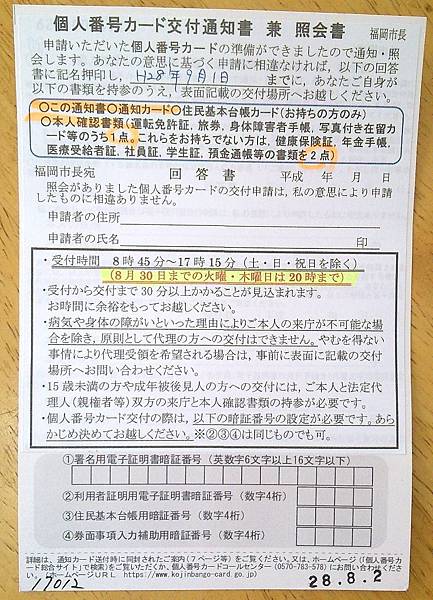 個人番号カード交付通知書 兼 照会書
福岡市長
申請いただいた個人番号カードの準備ができましたので通知・照
会します。あなたの意思に基づく申請に相違なければ、以下の回答
書に記名押印し、H28年9月1日 までに、あなたご自身が
以下の書類を持参のうえ、表面記載の交付場所へお越しください。
○この通知書○通知カード○住民基本台帳カード(お持ちの方のみ)
○本人確認書類(運転免許証、旅券、身体障害者手帳、写真付き在留カ
ード等のうち1点。これらをお持ちでない方は、健康保険証、年金手帳、
医療受給者証、社員証、学生証、預金通帳等の書類を2点)
福岡市長宛 回 答 書 平成 年 月 日
照会がありました個人番号カードの交付申請は、私の意思により申請
したものに相違ありません。
申請者の住所
申請者の氏名 印
・受付時間 8時45分~17時15分(土・日・祝日を除く)
(8月30日までの火曜・木曜日は20時まで)
・受付から交付まで30分以上かかることが見込まれます。
お時間に余裕をもってお越しください。
・病気や身体の障がいといった理由によりご本人の来庁が不可能な場
合を除き、原則として代理の方への交付はできません。やむを得ない
事情により代理受領を希望される場合は、事前に表面に記載の交付
場所へお問い合わせください。
・15歳未満の方や成年被後見人の方への交付には、ご本人と法定代
理人(親権者等)双方の来庁と本人確認書類の持参が必要です。
・個人番号カード交付の際は、以下の暗証番号の設定が必要です。あら
かじめ決めてお越しください。※②③④は同じものでも可。
①署名用電子証明書暗証番号 (英数字6文字以上16文字以下)
②利用者証明用電子証明書暗証番号(数字4桁)
③住民基本台帳用暗証番号(数字4桁)
④券面事項入力補助用暗証番号(数字4桁)
詳細は、通知カード送付時に同封されたご案内(7ページ等)をご覧ください。又は、ホームページ(「個人番号
カード総合サイト」で検索)をご覧いただくか、個人番号カードコールセンター(0570-783-578)にお問い合わせくださ
い。(ホームページURL https://www.kojinbango-card.go.jp)
17012
28.8.2